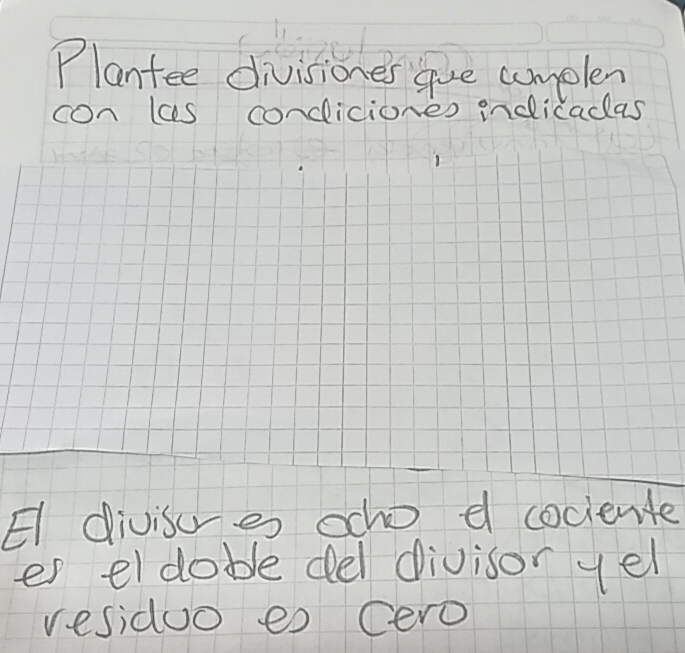 Plantee divisiones que cumplen
con las condiciones indicadas
El divisor es ocho el cociente
es el doble del divisor y el
residuo es cero